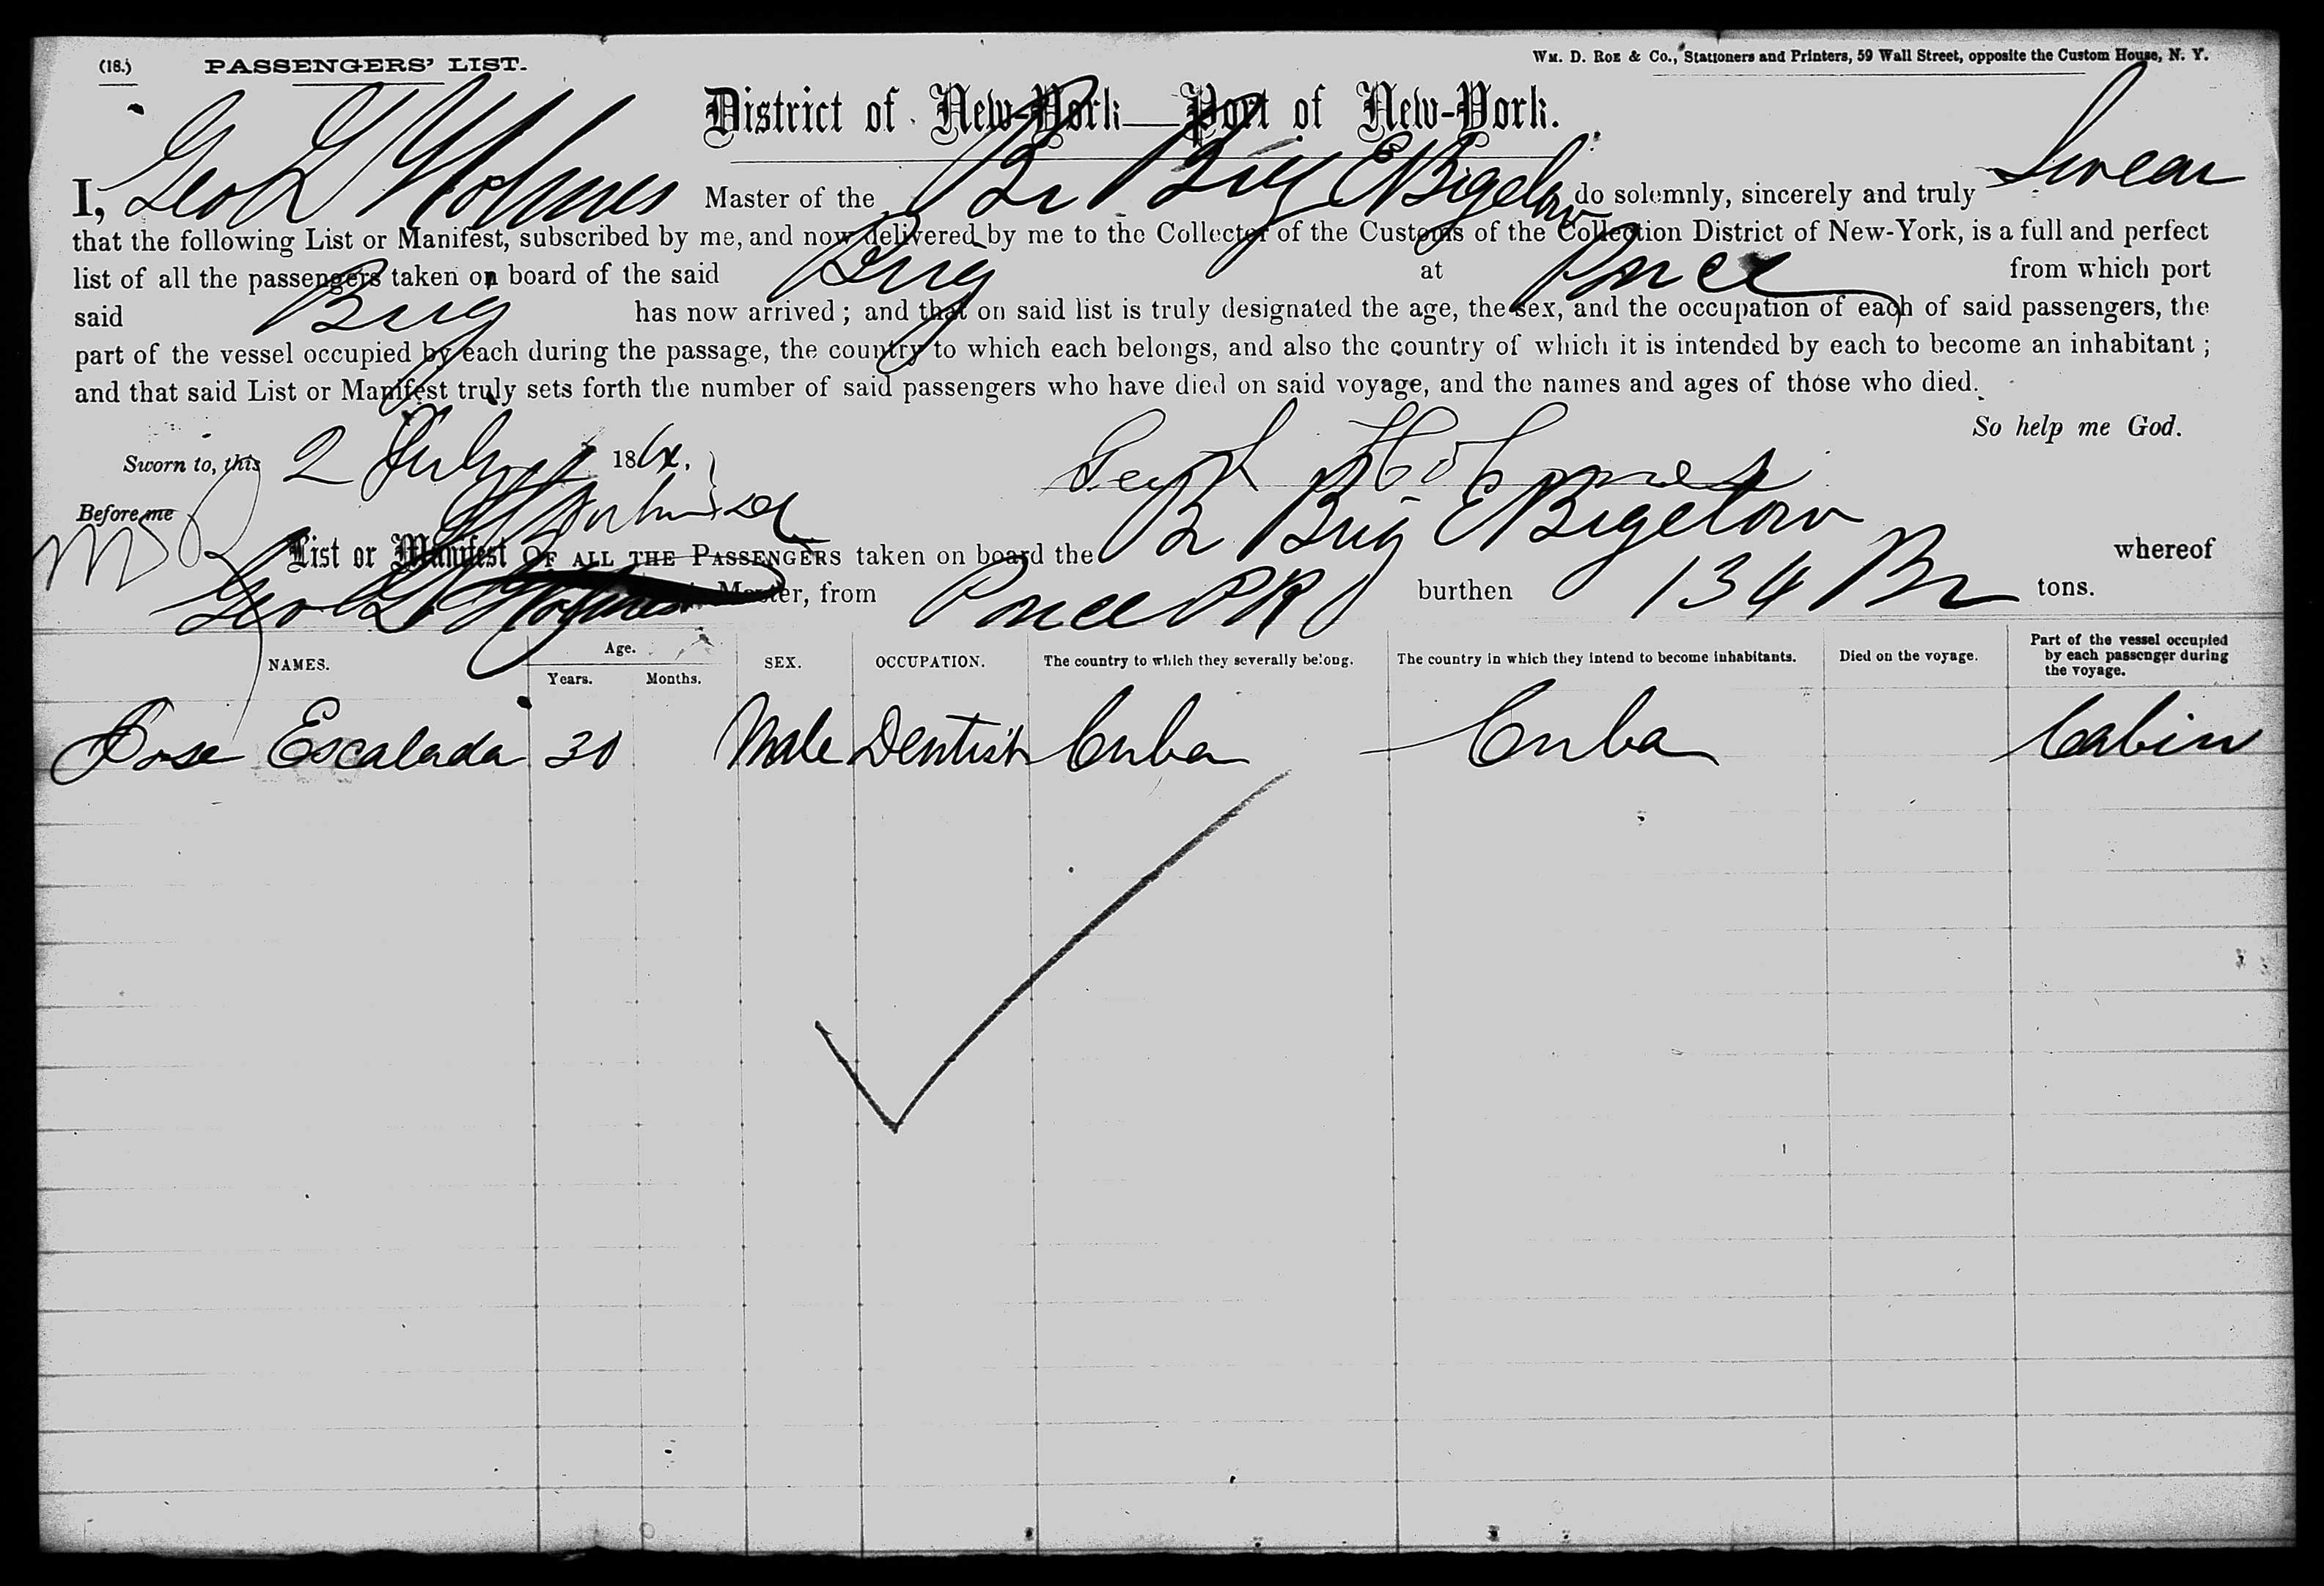 (18.) PASSENGERS' LIST. Wm. D. Roe & Co., Stationers and Printers, 59 Wall Street, opposite the Custom House, N. Y.
District of New-York—Port of New-York.
I, Geo L Holmes Master of the Br Brig E Bigelow do solemnly, sincerely and truly Swear
that the following List or Manifest, subscribed by me, and now delivered by me to the Collector of the Customs of the Collection District of New-York, is a full and perfect
list of all the passengers taken on board of the said Brig at Ponce from which port
said Brig has now arrived; and that on said list is truly designated the age, the sex, and the occupation of each of said passengers, the
part of the vessel occupied by each during the passage, the country to which each belongs, and also the country of which it is intended by each to become an inhabitant;
and that said List or Manifest truly sets forth the number of said passengers who have died on said voyage, and the names and ages of those who died.
So help me God.
Sworn to, this 2 July 186
Geo L Holmes
Before me
List or Manifest OF ALL THE PASSENGERS taken on board the Br Brig E Bigelow whereof
Geo L Holmes Master, from Ponce PR burthen 134 tons.
NAMES. Age. Years. Months. SEX. OCCUPATION. The country to which they severally belong. The country in which they intend to become inhabitants. Died on the voyage. Part of the vessel occupied by each passenger during the voyage.
Jose Escalada 30 Male Dentist Cuba Cuba Cabin